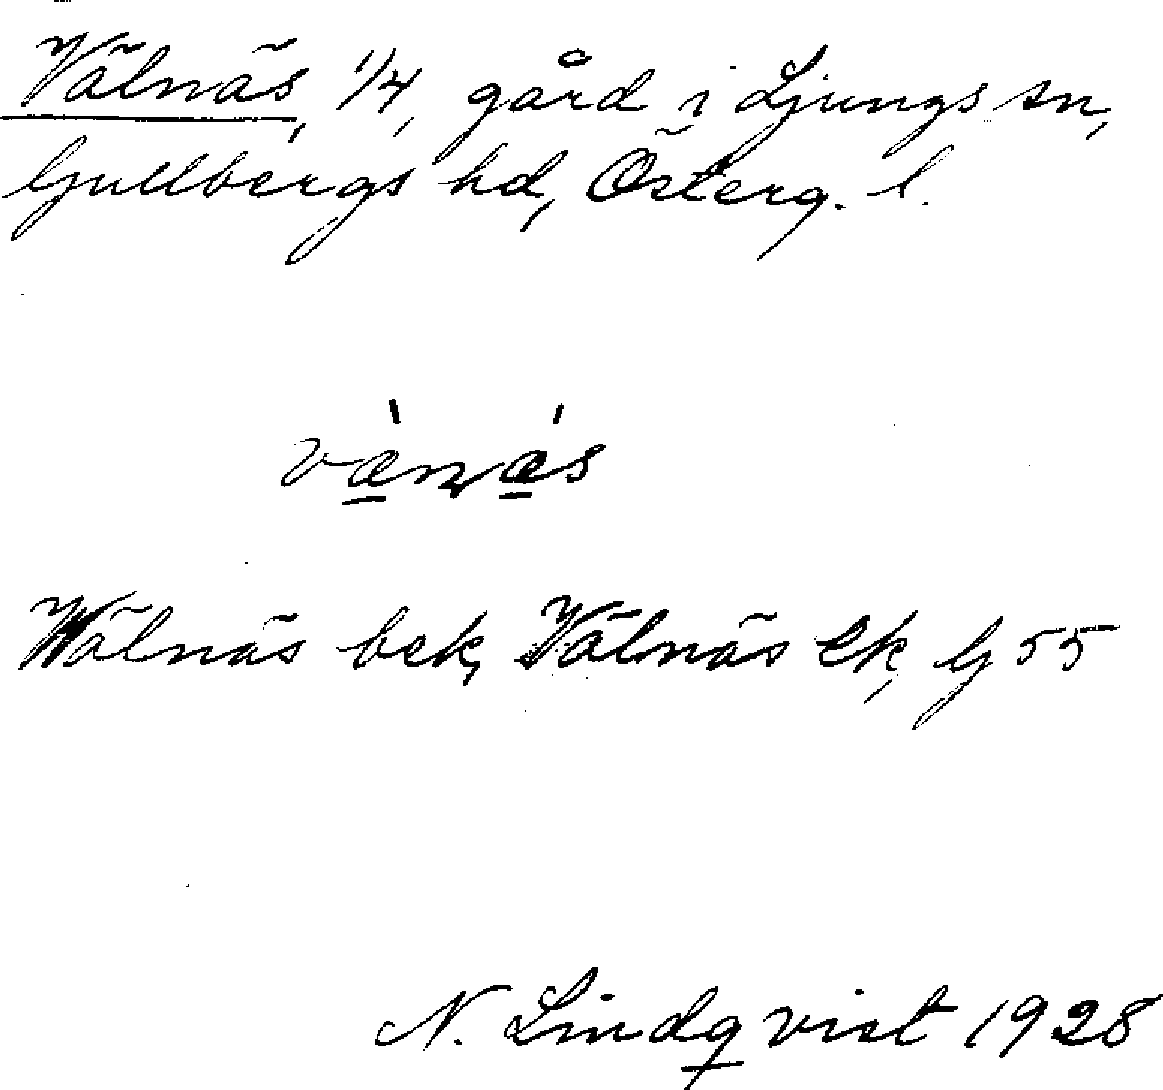 Välnäs, 1/4, gård i Ljungs sn,
Gullbergs hd, Österg. l.
vænæs
Wälnäs bek, Välnäs Ek, G 55
N. Lindqvist 1928